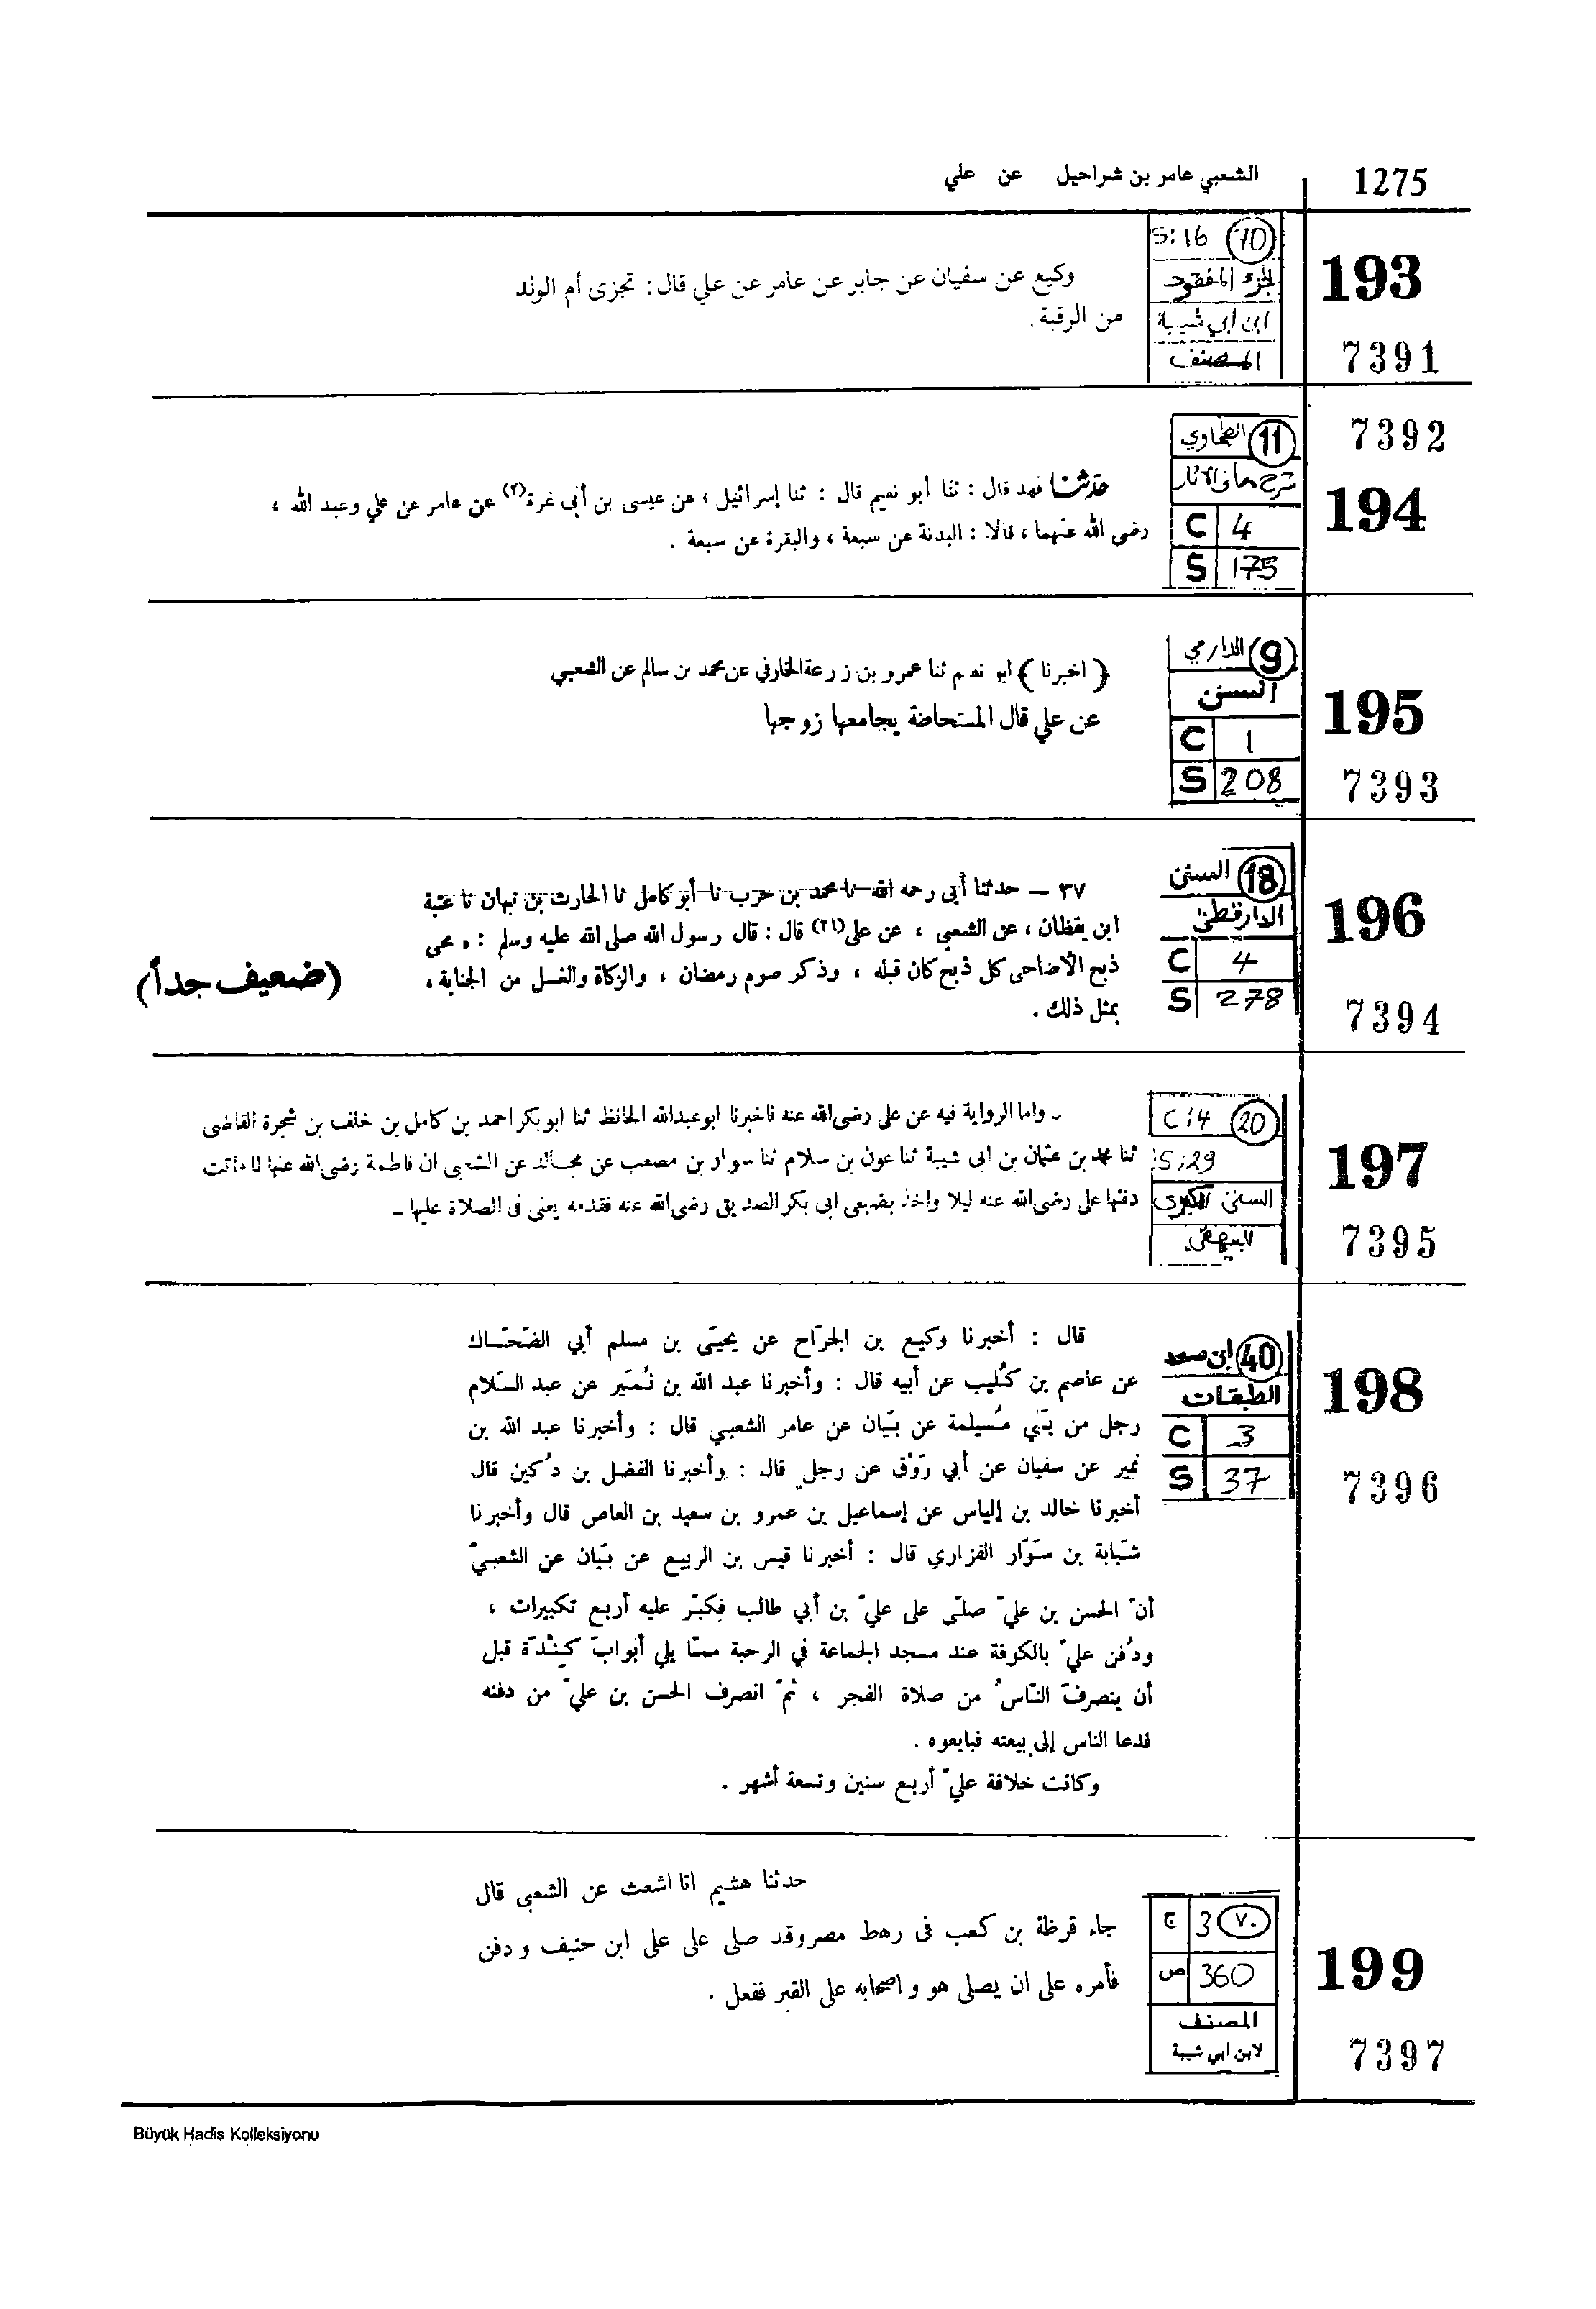 1275
الشعبي عامر بن شراحيل عن علي
193
7391
S:16 10
الجزء المفقود
ابن ابي شيبة
المصنف
وكيع عن سفيان عن جابر عن عامر عن علي قال: تجزى أم الولد
من الرقبة.
7392
194
11 الطحاوي
شرح معاني الآثار
C 4
S 175
حدثنا فهد قال : ثنا أبو نعيم قال : ثنا إسرائيل ، عن عيسى بن أبى عزة(٢) عن عامر عن علي وعبد الله ،
رضى الله عنهما ، قالا : البدنة عن سبعة ، والبقرة عن سبعة .
195
7393
9 الدارمي
السنن
C 1
S 208
﴿ اخبرنا ﴾ ابو نعيم ثنا عمرو بن زرعة الخارفي عن محمد بن سالم عن الشعبي
عن علي قال المستحاضة يجامعها زوجها
196
7394
18 السنن
الدارقطني
C 4
S 278
٣٧ – حدثنا أبى رحمه الله نا محمد بن حرب نا أبو كامل نا الحارث بن نبهان نا عتبة
ابن يقظان ، عن الشعبى ، عن على(٢١) قال : قال رسول الله صلى الله عليه وسلم : « محى
ذبح الأضاحى كل ذبح كان قبله ، وذكر صوم رمضان ، والزكاة والغسل من الجنابة ،
بمثل ذلك .
(ضعيف جداً)
197
7395
C:4 20
S:29
السنن الكبرى
البيهقي
ـ واما الرواية فيه عن على رضى الله عنه فاخبرنا ابو عبدالله الحافظ ثنا ابو بكر احمد بن كامل بن خلف بن شجرة القاضى
ثنا محمد بن عثمان بن ابى شيبة ثنا عون بن سلام ثنا سوار بن مصعب عن مجالد عن الشعبى ان فاطمة رضى الله عنها لما ماتت
دفنها على رضى الله عنه ليلا واخذ بضبعى ابى بكر الصديق رضى الله عنه فقدمه يعنى فى الصلاة عليها ـ
198
7396
40 ابن سعد
الطبقات
C 3
S 37
قال : أخبرنا وكيع بن الجرّاح عن يحيَى بن مسلم أبي الضّحّاك
عن عاصم بن كُليب عن أبيه قال : وأخبرنا عبد الله بن نُمَير عن عبد السّلام
رجل من بَني مُسيلمة عن بَيان عن عامر الشعبي قال : وأخبرنا عبد الله بن
نمير عن سفيان عن أبي رَوْق عن رجل قال : وأخبرنا الفضل بن دُكين قال
أخبرنا خالد بن إلياس عن إسماعيل بن عمرو بن سعيد بن العاص قال وأخبرنا
شَبابة بن سَوّار الفزاري قال : أخبرنا قيس بن الربيع عن بَيان عن الشعبيّ
أنّ الحسن بن عليّ صلّى على عليّ بن أبي طالب فكبّر عليه أربع تكبيرات ،
ودُفن عليّ بالكوفة عند مسجد الجماعة في الرحبة ممّا يلي أبوابَ كِنْدَة قبل
أن ينصرفَ النّاسُ من صلاة الفجر ، ثمّ انصرف الحسن بن عليّ من دفنه
فدعا الناس إلى بيعته فبايعوه .
وكانت خلافة عليّ أربع سنين وتسعة أشهر .
199
7397
ج 3 ٧٠
ص 360
المصنف
لابن ابي شيبة
حدثنا هشيم انا اشعث عن الشعبى قال
جاء قرظة بن كعب فى رهط مصر وقد صلى على على ابن حنيف و دفن
فأمره على ان يصلى هو و اصحابه على القبر ففعل .
Büyük Hadis Kolleksiyonu